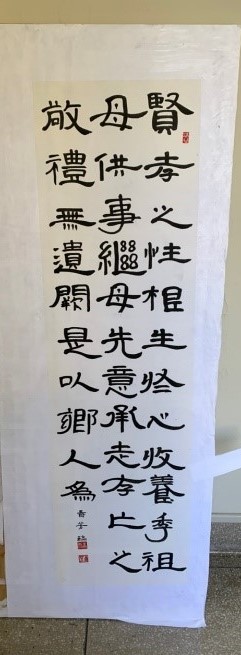 賢孝之性根生於心收養季祖
母供事繼母先意承志存亡之
敬禮無遺闕是以鄉人為